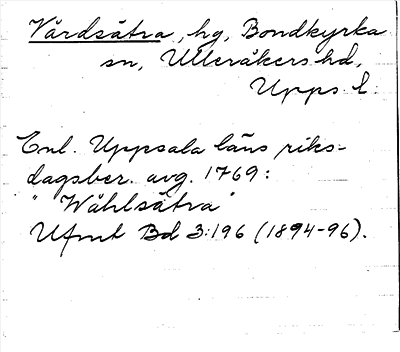 Vårdsätra, hg, Bondkyrka
sn, Ulleråkers hd,
Upps. l.
Enl. Uppsala läns riks-
dagsber. avg. 1769:
"Wåhlsätra"
Ufmt Bd 3:196 (1894-96).